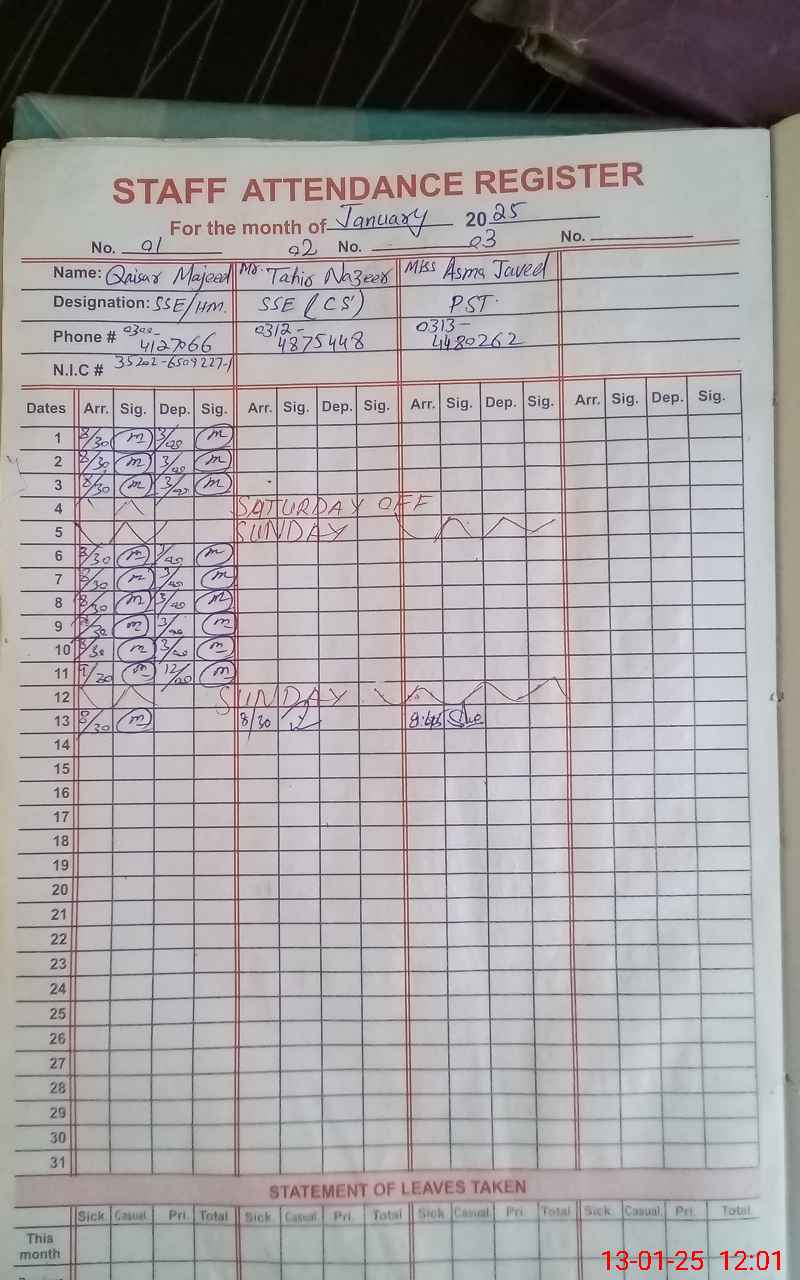 STAFF ATTENDANCE REGISTER
For the month of January 2025
No. 01 02 No. 03 No.
Name: Qaisar Majeed Mr. Tahir Nazeer Miss Asma Javed
Designation: SSE/HM. SSE (CS) PST.
Phone # 0300- 4127066 0312- 4875448 0313- 4480262
N.I.C # 35202-6509227-1
Dates Arr. Sig. Dep. Sig. Arr. Sig. Dep. Sig. Arr. Sig. Dep. Sig. Arr. Sig. Dep. Sig.
1 8/30 m
2 8/30 m
3 8/30 m
4 SATURDAY OFF
5 SUNDAY
6 8/30 m
7 8/30 m
8 8/30 m
9 8/30 m
10 8/30 m
11 m
12 SUNDAY
13 8/30 m 8/30 8:45
14
15
16
17
18
19
20
21
22
23
24
25
26
27
28
29
30
31
STATEMENT OF LEAVES TAKEN
Sick Casual Pri. Total Sick Casual. Pri. Total Sick Casual. Pri. Total Sick Casual. Pri. Total
This
month
13-01-25 12:01